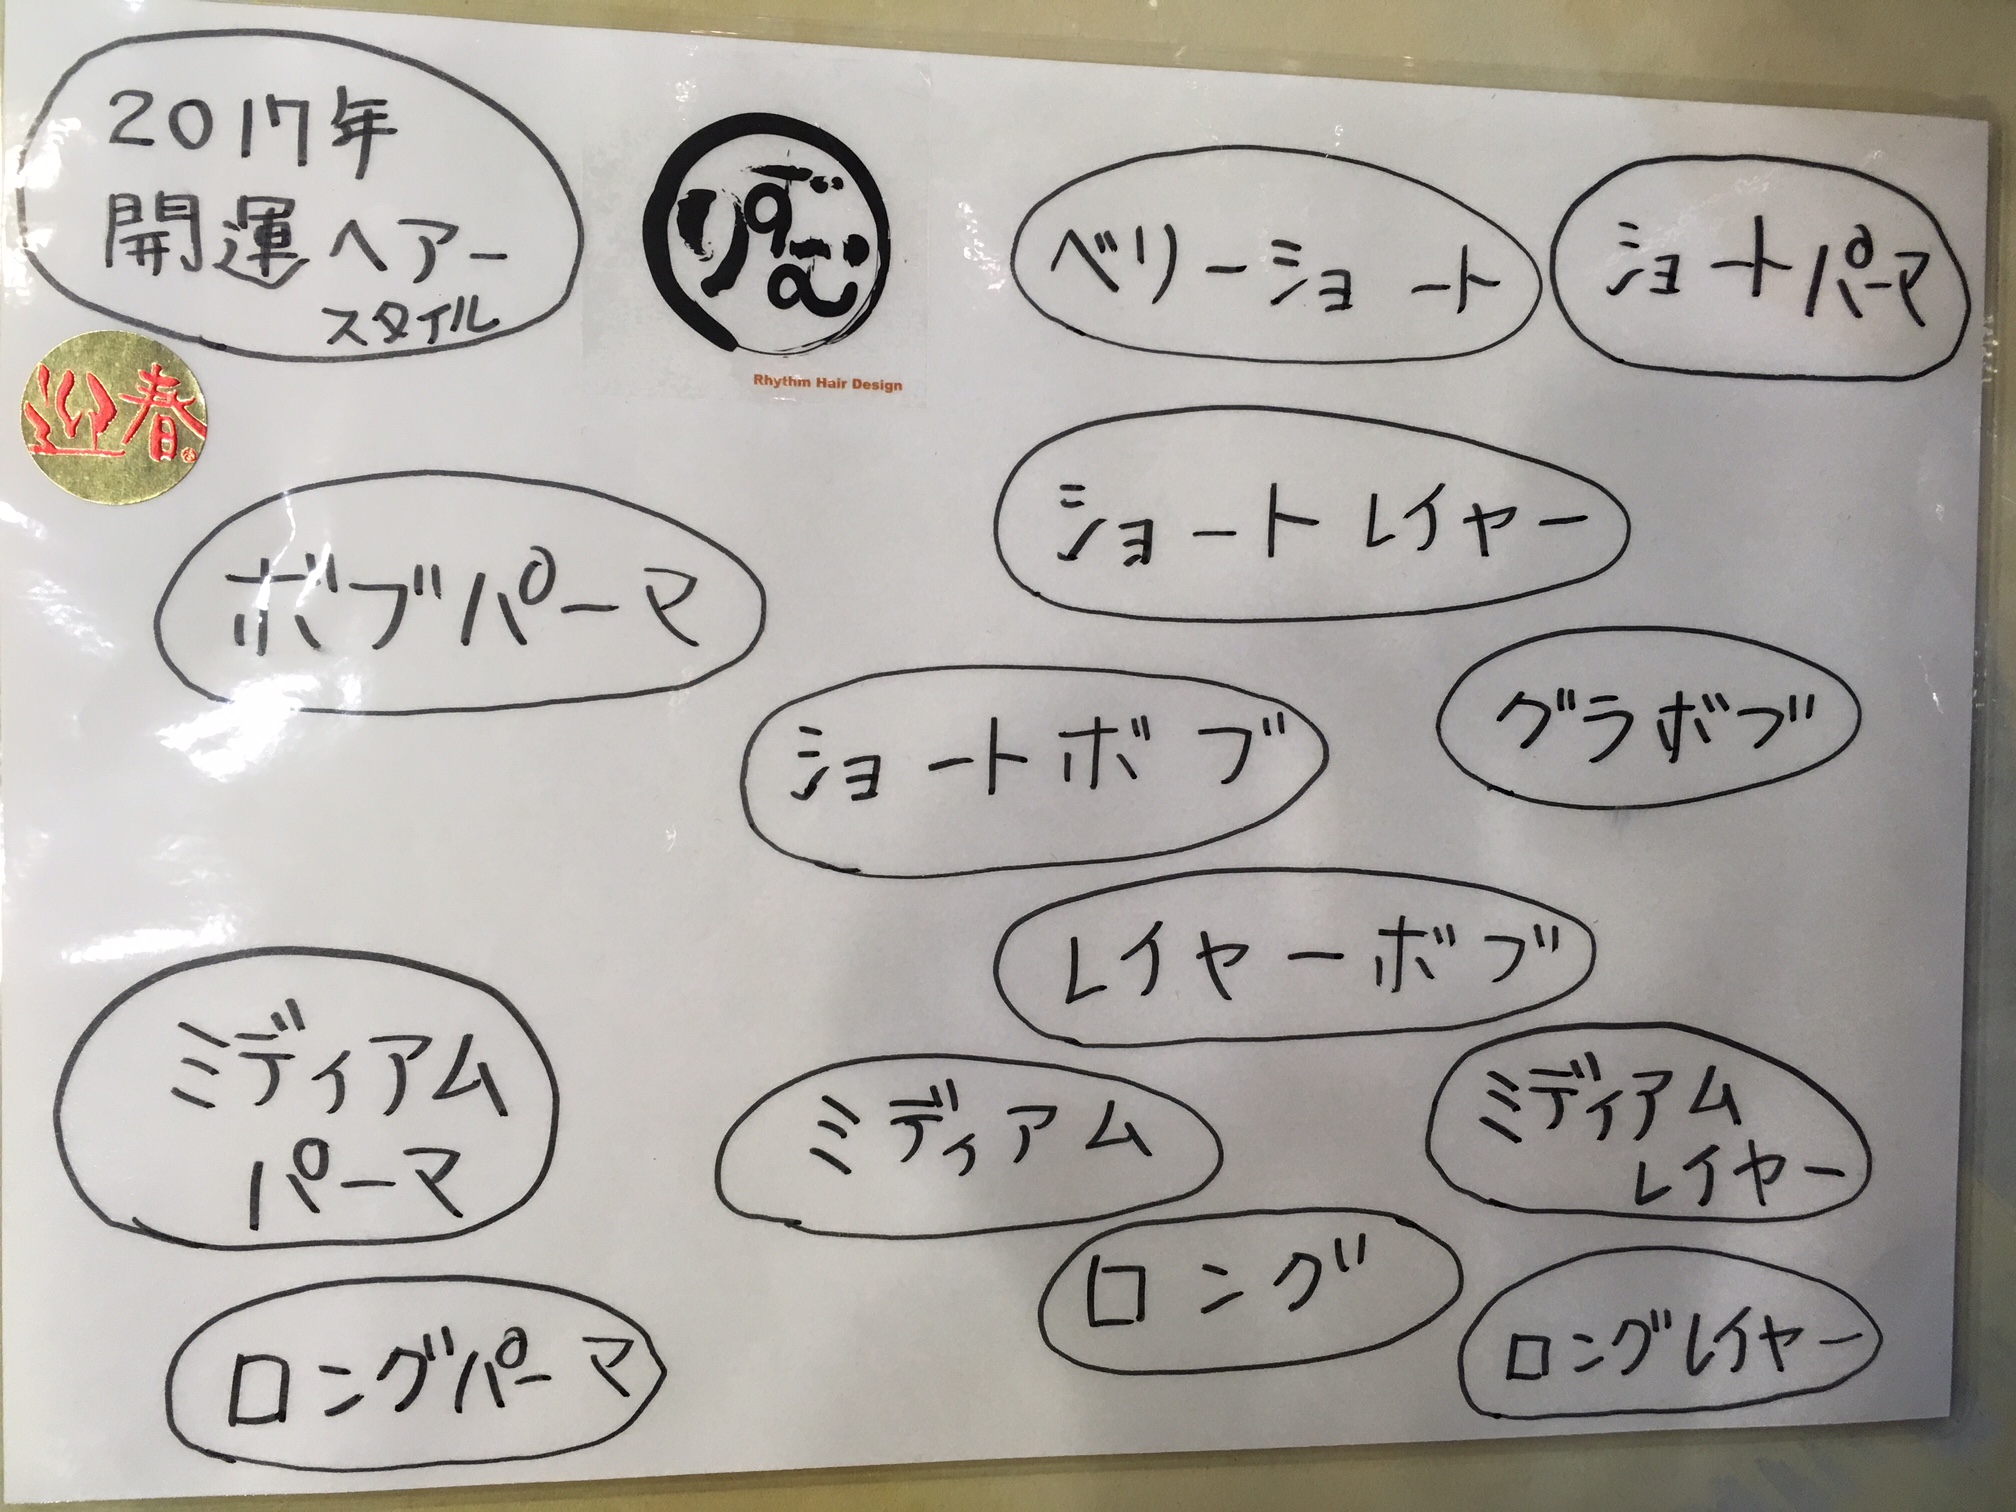 2017年
開運ヘアー
スタイル
りずむ
Rhythm Hair Design
迎春
ベリーショート
ショートパーマ
ショートレイヤー
ボブパーマ
ショートボブ
グラボブ
レイヤーボブ
ミディアム
パーマ
ミディアム
ミディアム
レイヤー
ロング
ロングパーマ
ロングレイヤー